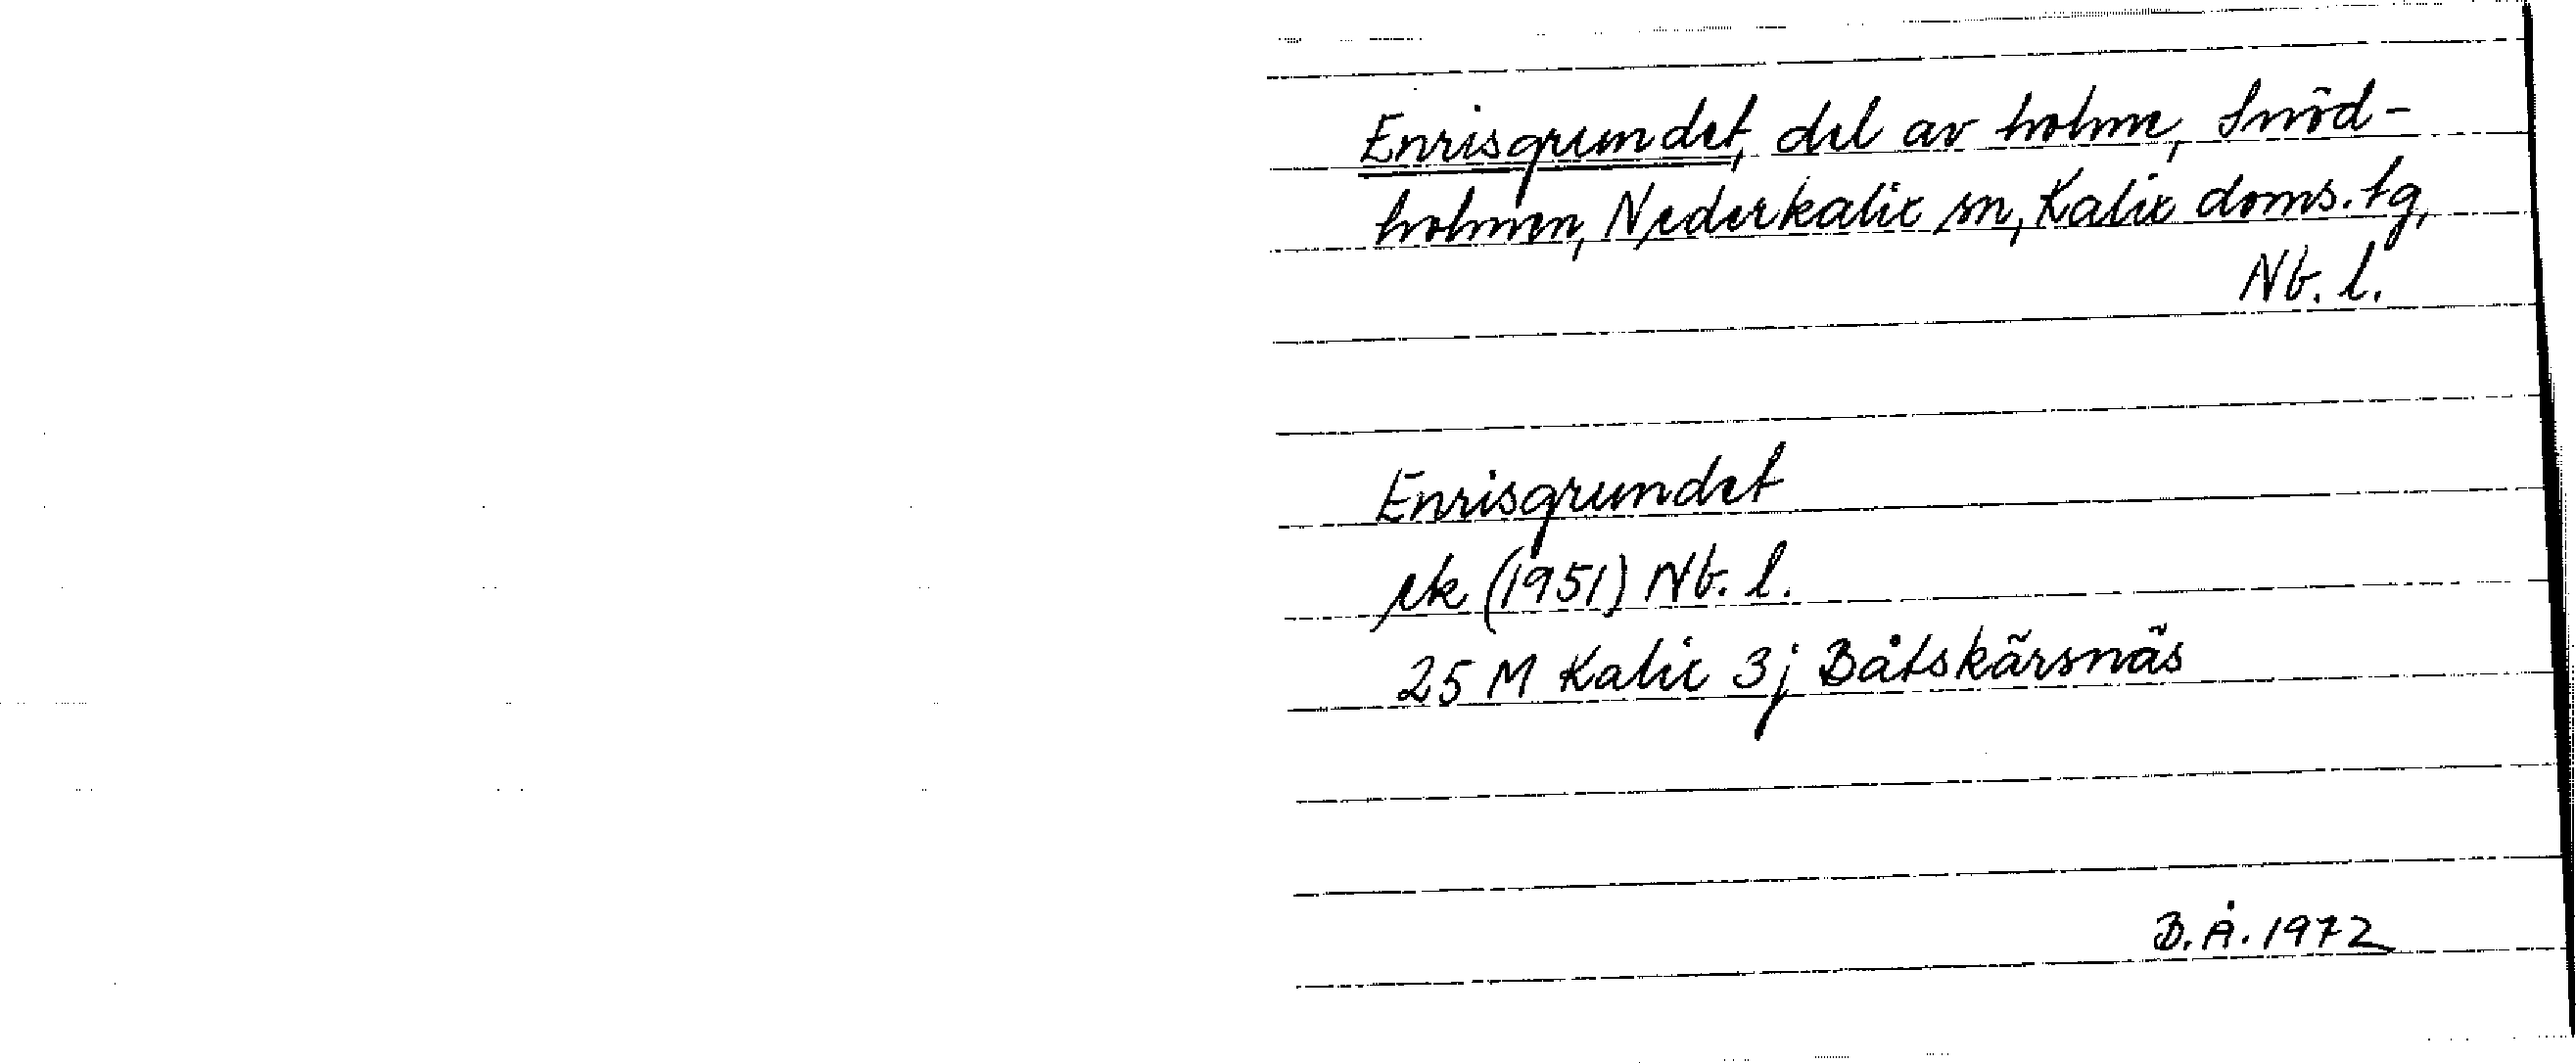 Enrisgrundet, del av holme, Snöd-
holmen, Nederkalix sn, Kalix doms. tg,
Nb. l.
Enrisgrundet
rek (1951) Nb. l.
25 M Kalix 3j Båtskärsnäs
B.Å. 1972